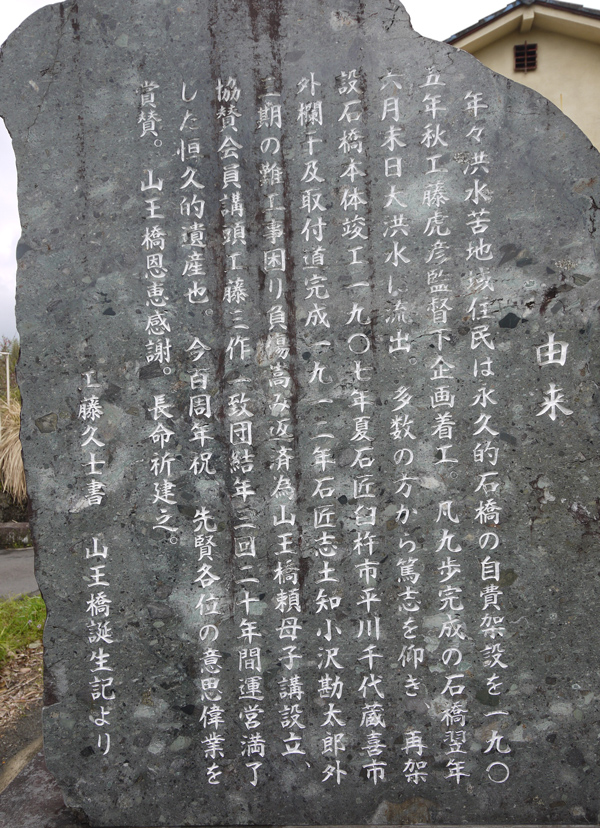 由来
年々洪水苦地域住民は永久的石橋の自費架設を一九〇
五年秋工藤虎彦監督下企画着工。凡九歩完成の石橋翌年
六月末日大洪水し流出。多数の方から篤志を仰き、再架
設石橋本体竣工一九〇七年夏石匠臼杵市平川千代蔵喜市
外欄干及取付道完成一九一二年石匠志土知小沢勘太郎外
二期の難工事困り負傷嵩み返済為山王橋頼母子講設立、
協賛会員講頭工藤三作一致団結年三回二十年間運営満了
した恒久的遺産也。今百周年祝 先賢各位の意思偉業を
賞賛。山王橋恩恵感謝。長命祈建之。
工藤久士書 山王橋誕生記より